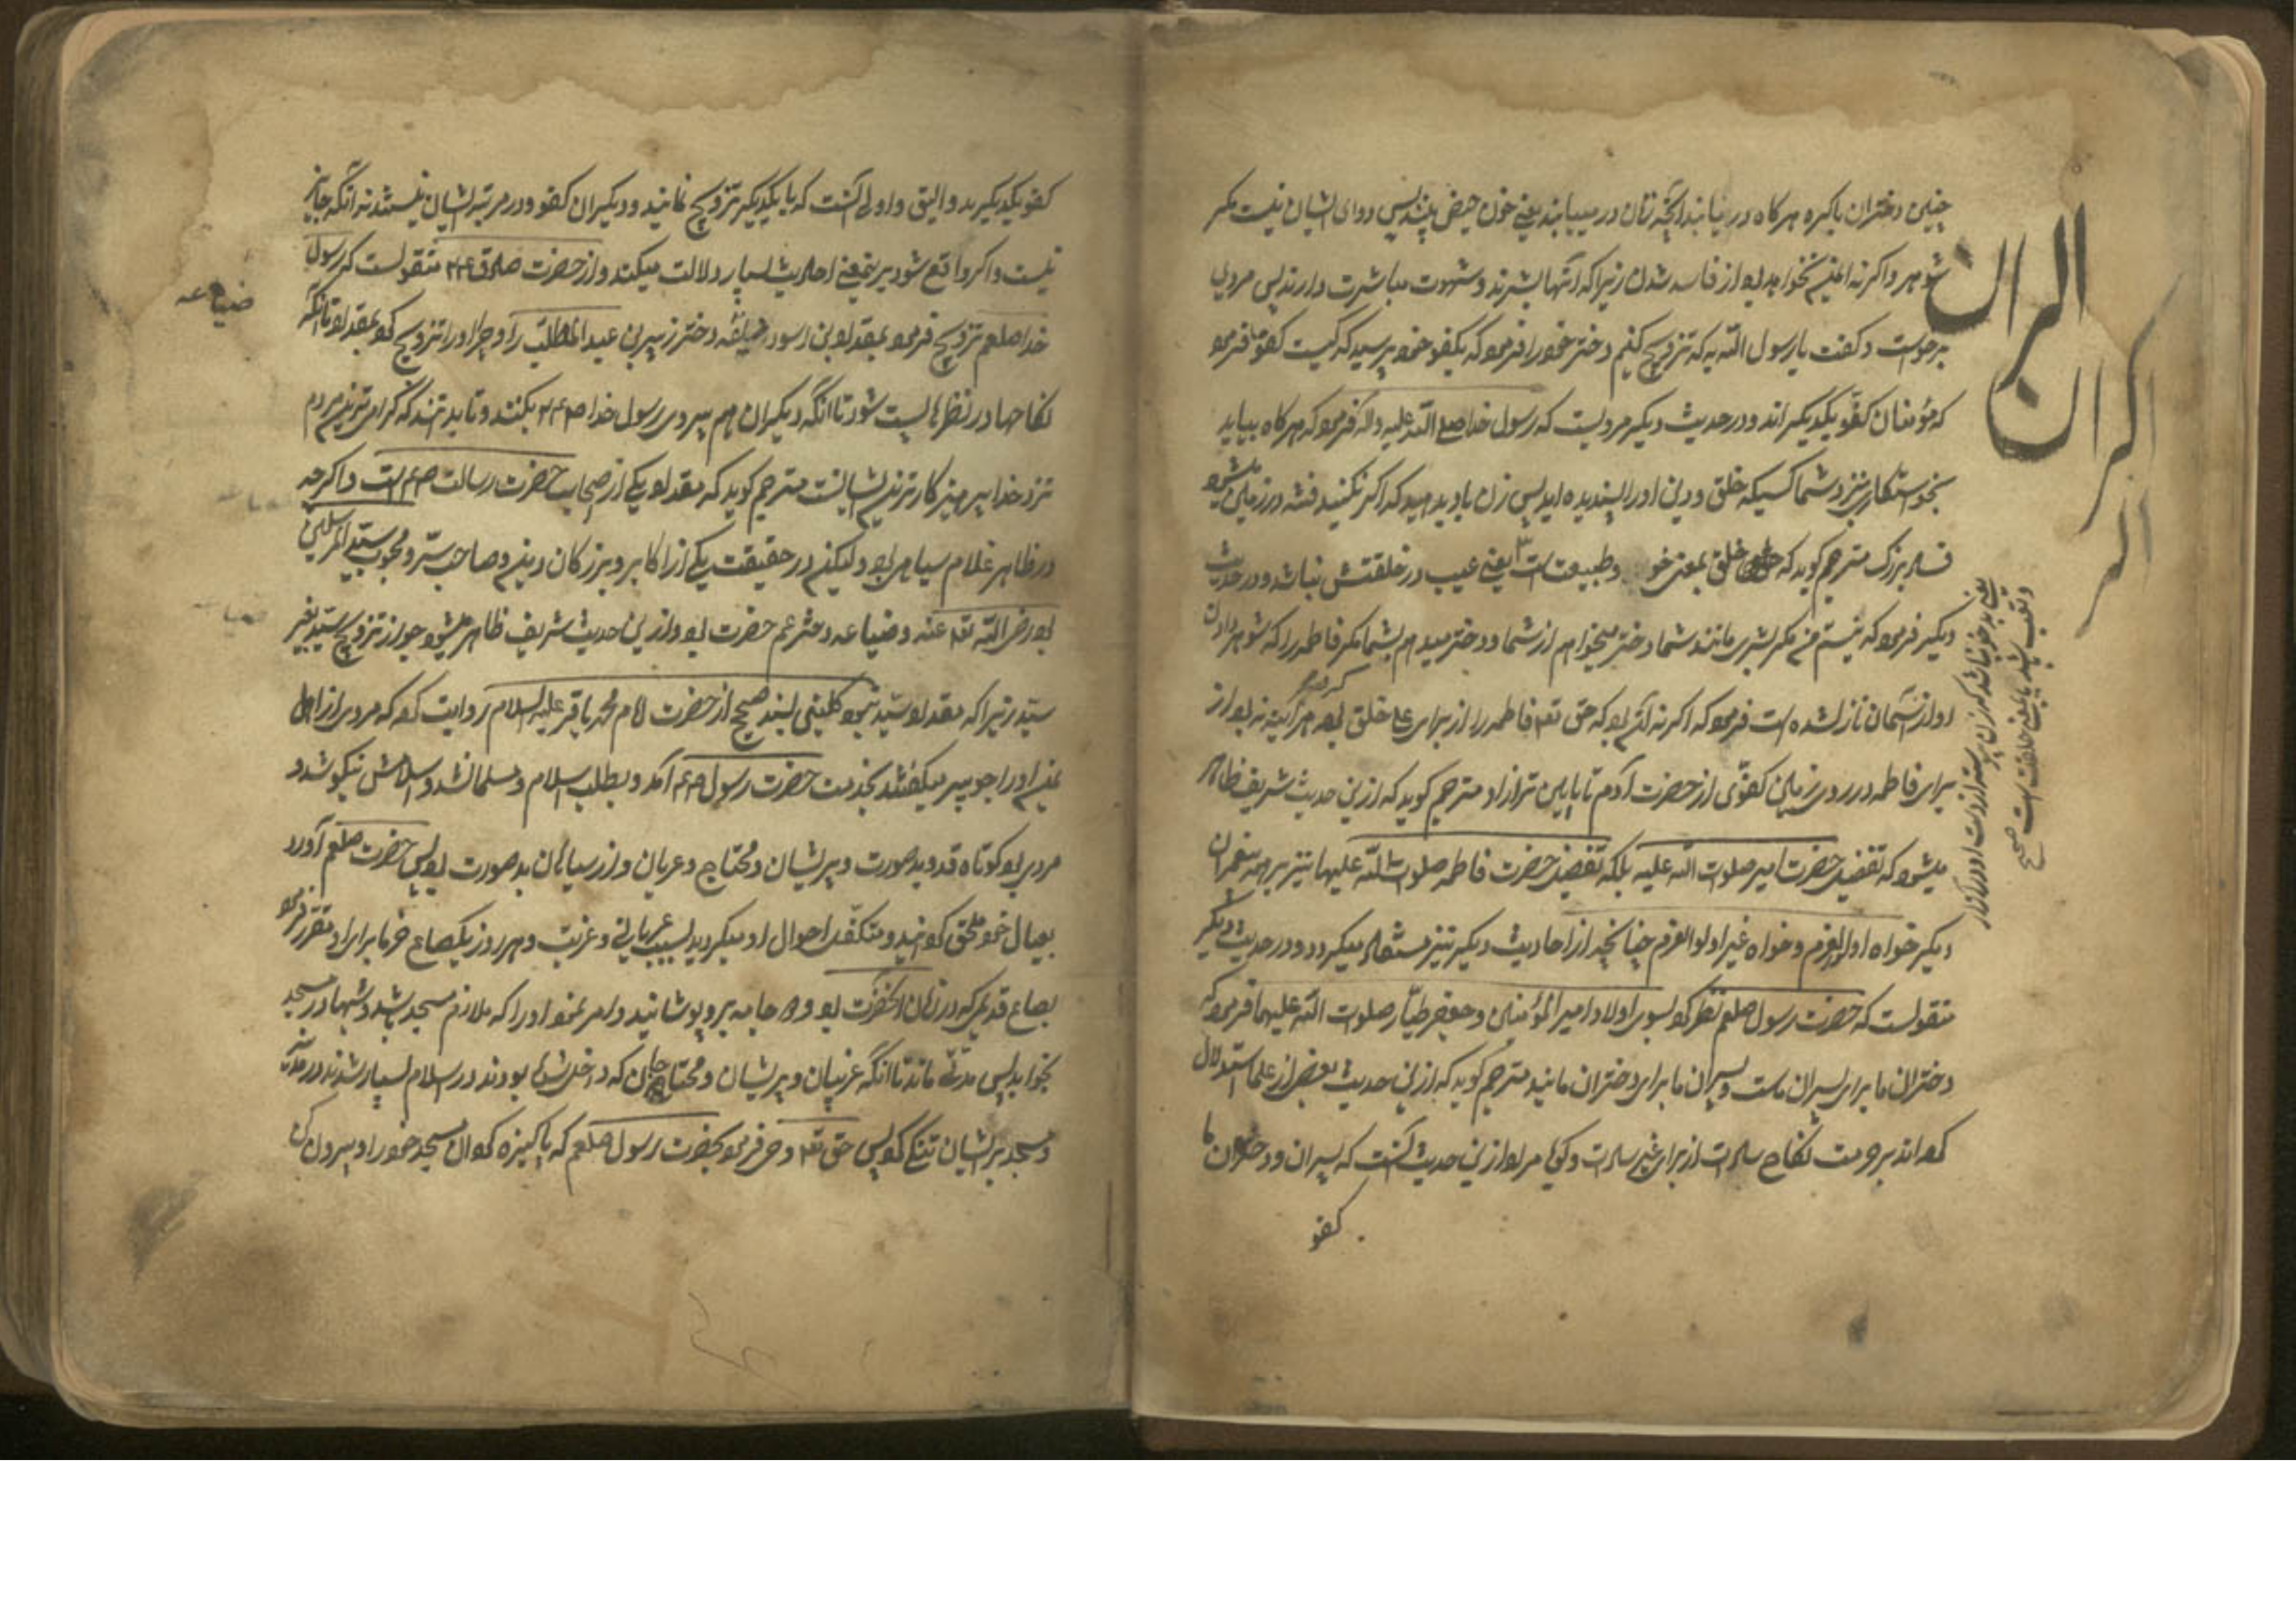 چنین دختران باکره هرکاه در نیابند آنچه زنان در مییابند یعنی خون حیض بینند پس دوای ایشان نیست مکر
شوهر و اکر نه ایمن نخواهد بود از فاسد شدن زیرا که آنها بشرند و شهوت مباشرت دارند پس مردی
برخواست و کفت یا رسول الله به که تزویج کنیم دختر خود را فرمود که بکفو خود پرسید که کیست کفو ما فرمود
که مؤمنان کفو یکدیکراند و در حدیث دیکر مرویست که رسول خدا صلی الله علیه و اله فرمود که هرکاه بیاید
بخواستکاری بنزد شما کسیکه خلق و دین او را پسندیده اید پس زن باو بدهید که اکر نکنید فتنه در زمین میشود
فساد بزرک مترجم کوید که خلق بمعنی خو و طبیعت است یعنی عیب در خلقتش نباشد و در حدیث
دیکر فرمود که نیستم من مکر بشری مانند شما دختر میخواهم از شما و دختر میدهم بشما مکر فاطمه را که شوهر دادن
او از آسمان نازل شده است فرمود که اکر نه آن بود که حق تعه فاطمه را از برای علی خلق کرده بود هر آینه نبود از
برای فاطمه در روی زمین کفوی از حضرت آدم تا پایین تر از او مترجم کوید که از این حدیث شریف ظاهر
میشود که تفضیل حضرت امیر صلوات الله علیه بلکه تفضیل حضرت فاطمه صلوات الله علیها نیز بر همه پیغمبران
دیکر خواه اولوالعزم و خواه غیر اولوالعزم چنانچه از احادیث دیکر نیز مستفاد میکردد و در حدیث دیکر
منقولست که حضرت رسول صلعم نظر کرد بسوی اولاد امیر المؤمنین و جعفر طیار صلوات الله علیهما فرمود که
دختران ما برای پسران ماست و پسران ما برای دختران مایند مترجم کوید که از این حدیث بعضی از علما استدلال
کرده اند بر حرمت نکاح سادات از برای غیر سادات و کویا مراد از این حدیث آنست که پسران و دختران ما
کفو
الران
کران
الر
کفو یکدیکرند و الیق و اولی آنست که با یکدیکر تزویج نمایند و دیکران کفو و در مرتبه ایشان نیستند نه آنکه جایز
نیست و اکر واقع شود بر این معنی احادیث بسیار دلالت میکند و از حضرت صادق منقولست که رسول
خدا صلعم تزویج فرمود بمقداد بن اسود ضباعه دختر زبیر بن عبد المطلب را و چرا او را تزویج کرد بمقداد تا آنکه
نکاحها در نظرها پست شود تا آنکه دیکران هم پیروی رسول خدا بکنند و تا بدانند که کرامی ترین مردم
نزد خدا پرهیزکارترین ایشانست مترجم کوید که مقداد یکی از صحابه حضرت رسالت است و اکرچه
در ظاهر غلام سیاهی بود ولیکن در حقیقت یکی از اکابر و بزرکان دین و صاحب سر و محبوب سید المرسلین
بود رضی الله تعه عنه و ضباعه دختر عم حضرت بود و از این حدیث شریف ظاهر میشود جواز تزویج سید بغیر
سید زیرا که مقداد سید نبود کلینی بسند صحیح از حضرت امام محمد باقر علیه السلام روایت کرد که مردی از اهل
یمامه او را جویبر میکفتند بخدمت حضرت رسول آمد و بطلب اسلام و مسلمان شد و اسلامش نیکو شد و
مردی بود کوتاه قد و بدصورت و پریشان و محتاج و عریان و از سیاهان بدصورت بود پس حضرت صلعم آورد
بعیال خود ملحق کردانید و متکفل احوال او میکردید بسبب عریانی و غربت و هر روز یکصاع خرما برای او مقرر فرمود
بصاع قدیم که در زمان آنحضرت بود و دو جامه برو پوشانید و امر نمود او را که ملازم مسجد باشد و شبها در مسجد
بخوابد پس مدتی ماند تا آنکه غریبان و پریشان و محتاجان که داخل شده بودند در اسلام بسیار شدند در مدینه
و مسجد بر ایشان تنک کرد پس حق تعه وحی فرمود بحضرت رسول صلعم که پاکیزه کردان مسجد خود را و بیرون کن
ضباعه